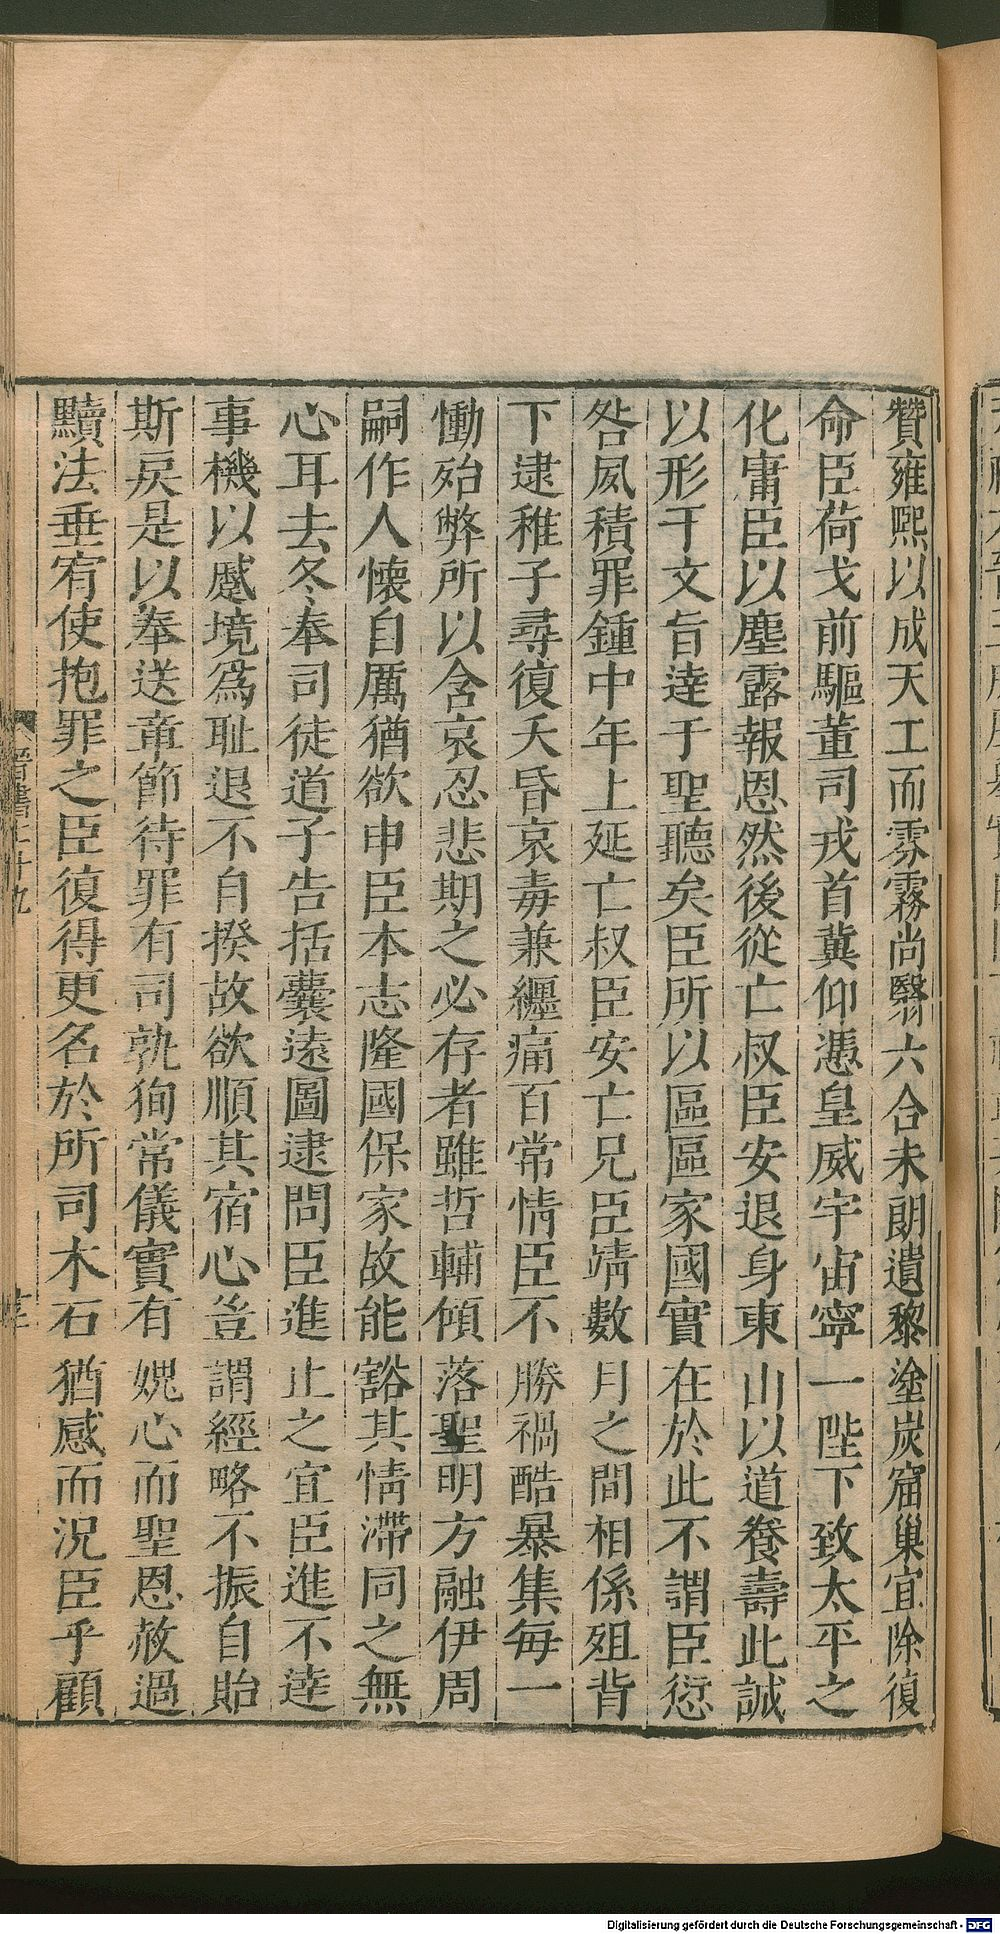 贊雍熙以成天工而雰霧尚翳六合未朗遺黎塗炭窟巢宜除復
命臣荷戈前驅董司戎首冀仰憑皇威宇宙寧一陛下致太平之
化庸臣以塵露報恩然後從亡叔臣安退身東山以道養壽此誠
以形于文旨達于聖聽矣臣所以區區家國實在於此不謂臣愆
咎夙積罪鍾中年上延亡叔臣安亡兄臣靖數月之間相係殂背
下逮稚子尋復夭昏哀毒兼纏痛百常情臣不勝禍酷暴集每一
慟殆弊所以含哀忍悲期之必存者雖哲輔傾落聖明方融伊周
嗣作人懷自厲猶欲申臣本志隆國保家故能豁其情滯同之無
心耳去冬奉司徒道子告括囊遠圖逮問臣進止之宜臣進不達
事機以蹙境爲耻退不自揆故欲順其宿心豈謂經略不振自貽
斯戾是以奉送章節待罪有司執狥常儀實有媿心而聖恩赦過
黷法垂宥使抱罪之臣復得更名於所司木石猶感而況臣乎顧
晉書七十九
Digitalisierung gefördert durch die Deutsche Forschungsgemeinschaft - DFG